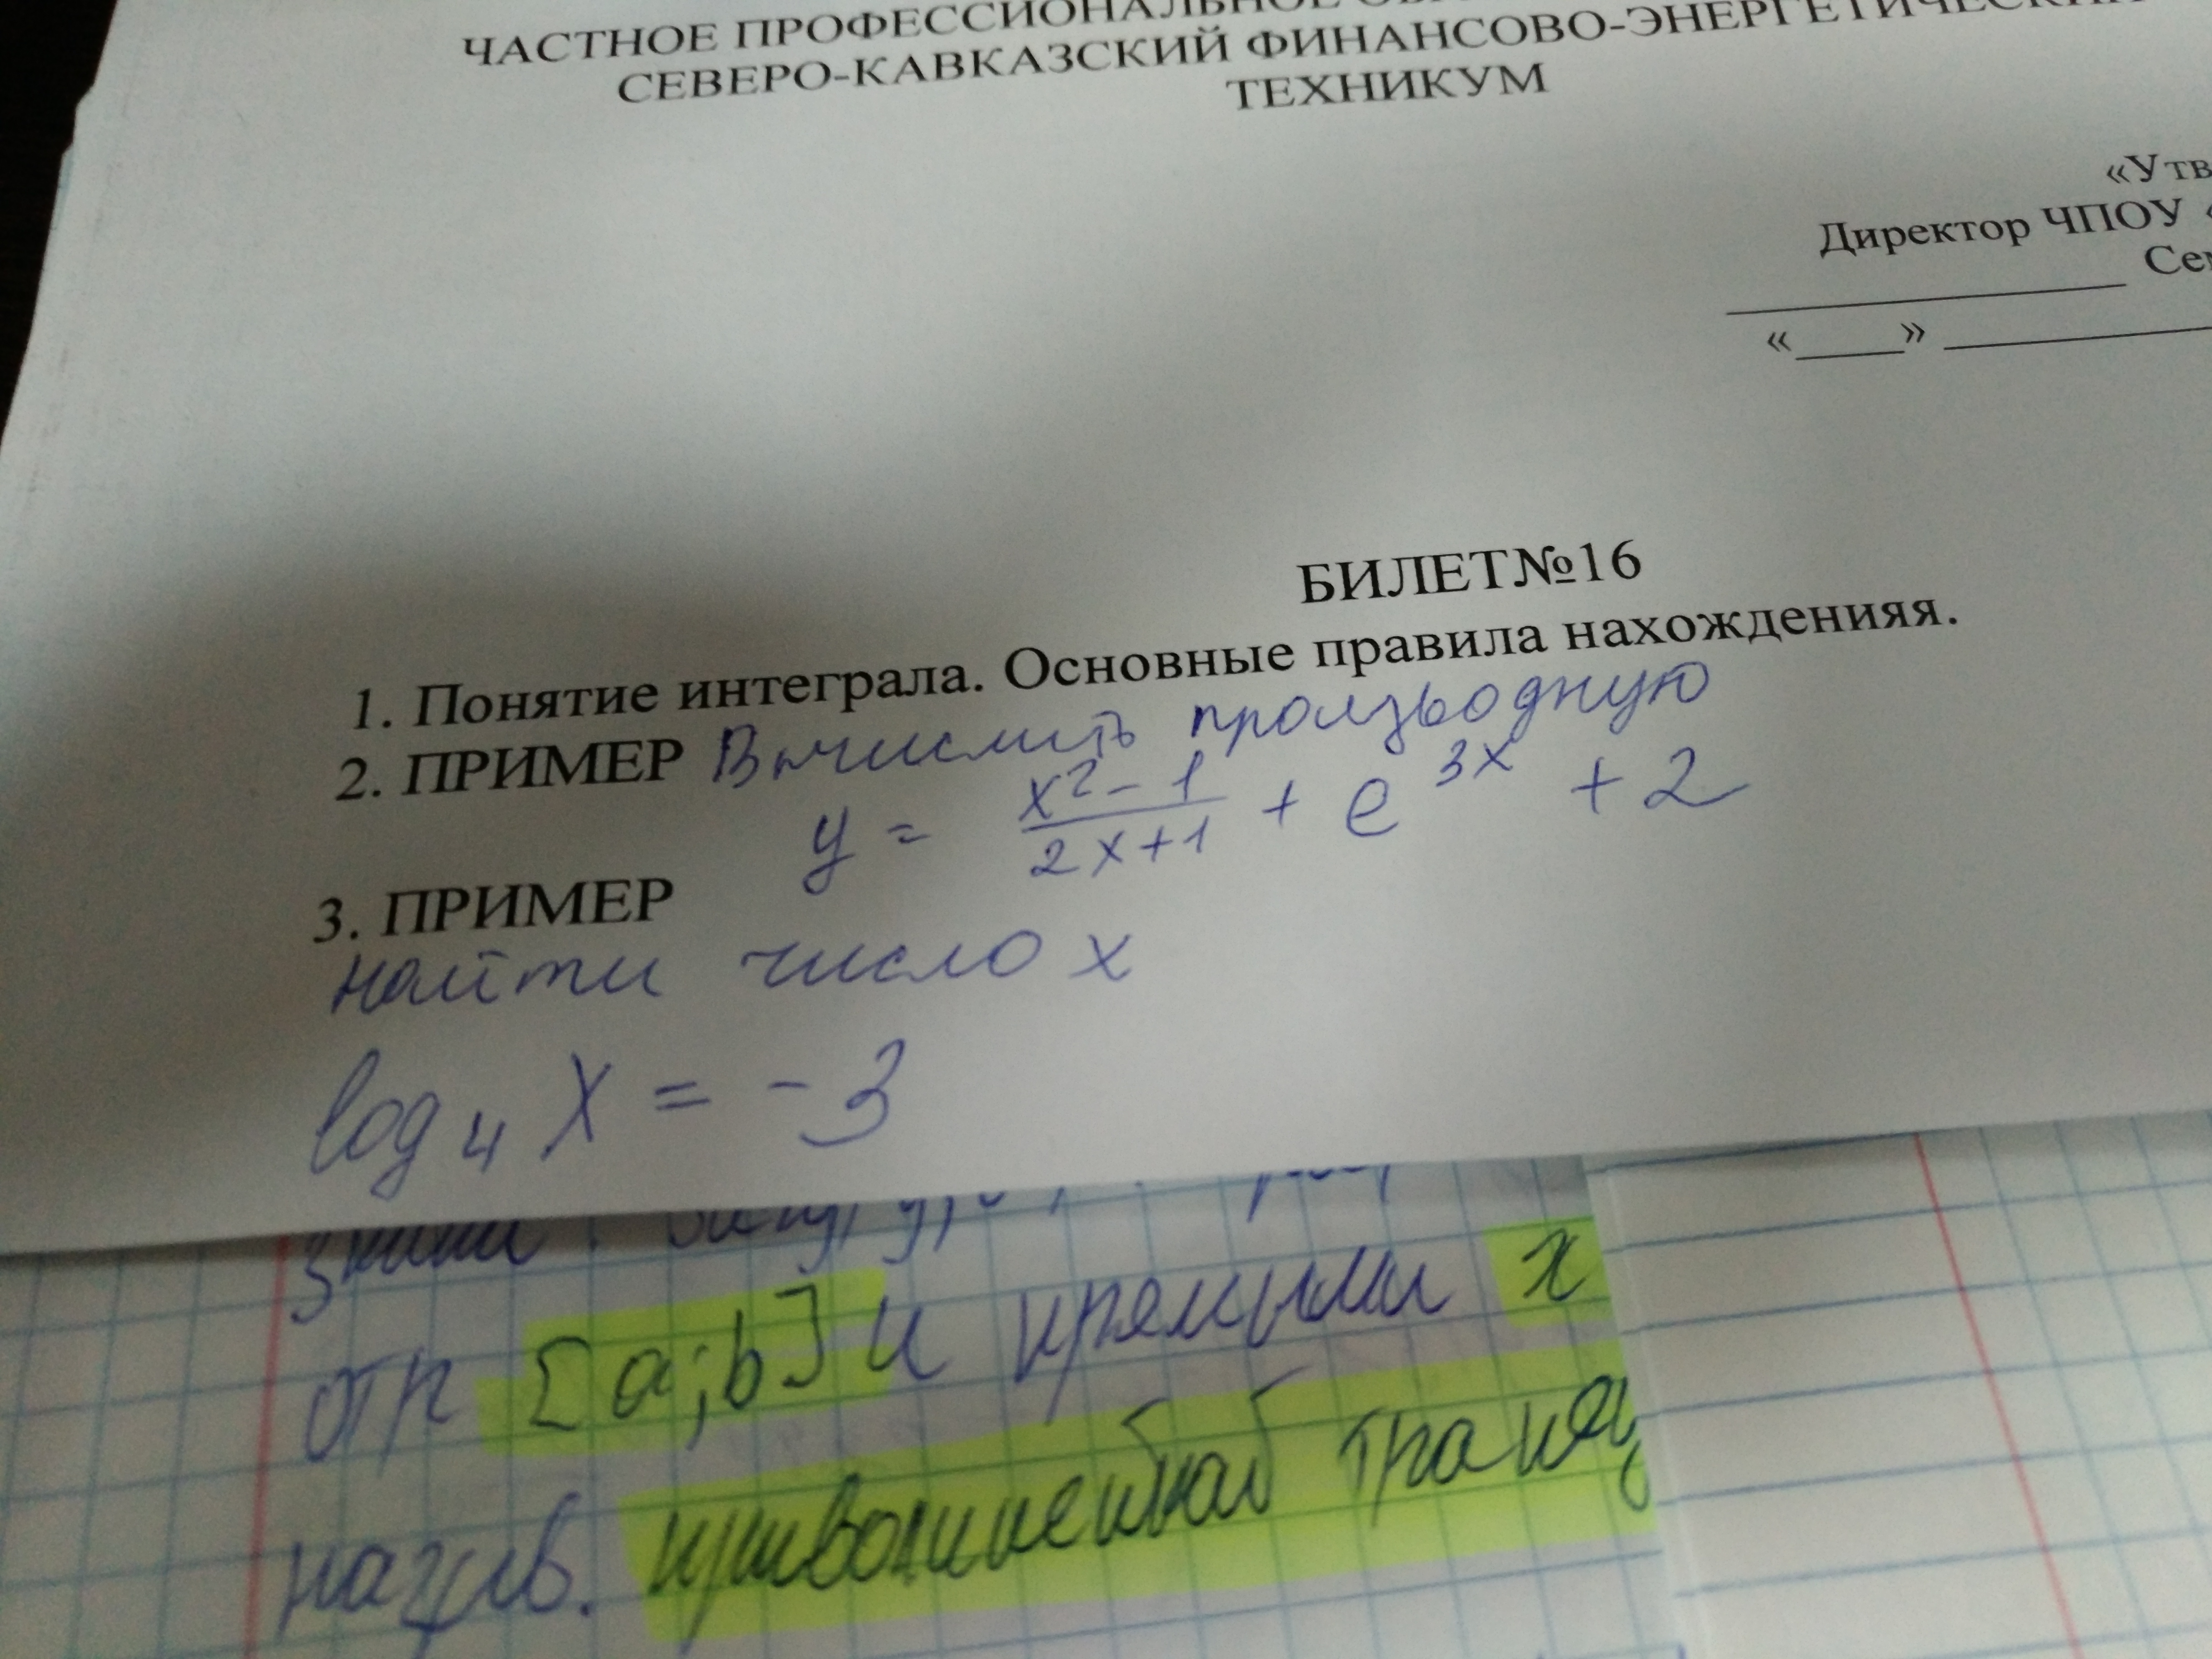 ЧАСТНОЕ ПРОФЕССИОНАЛЬНОЕ
СЕВЕРО-КАВКАЗСКИЙ ФИНАНСОВО-ЭНЕРГЕТИЧЕСКИЙ
ТЕХНИКУМ
«Утв
Директор ЧПОУ «
Сем
«____» ____
БИЛЕТ№16
1. Понятие интеграла. Основные правила нахожденияя.
2. ПРИМЕР Вычислить производную
y = \frac{x^2-1}{2x+1} + e^{3x} + 2
3. ПРИМЕР
найти число x
log₄ X = -3
отр [a;b] и прямыми x
назыв. криволинейной трапец